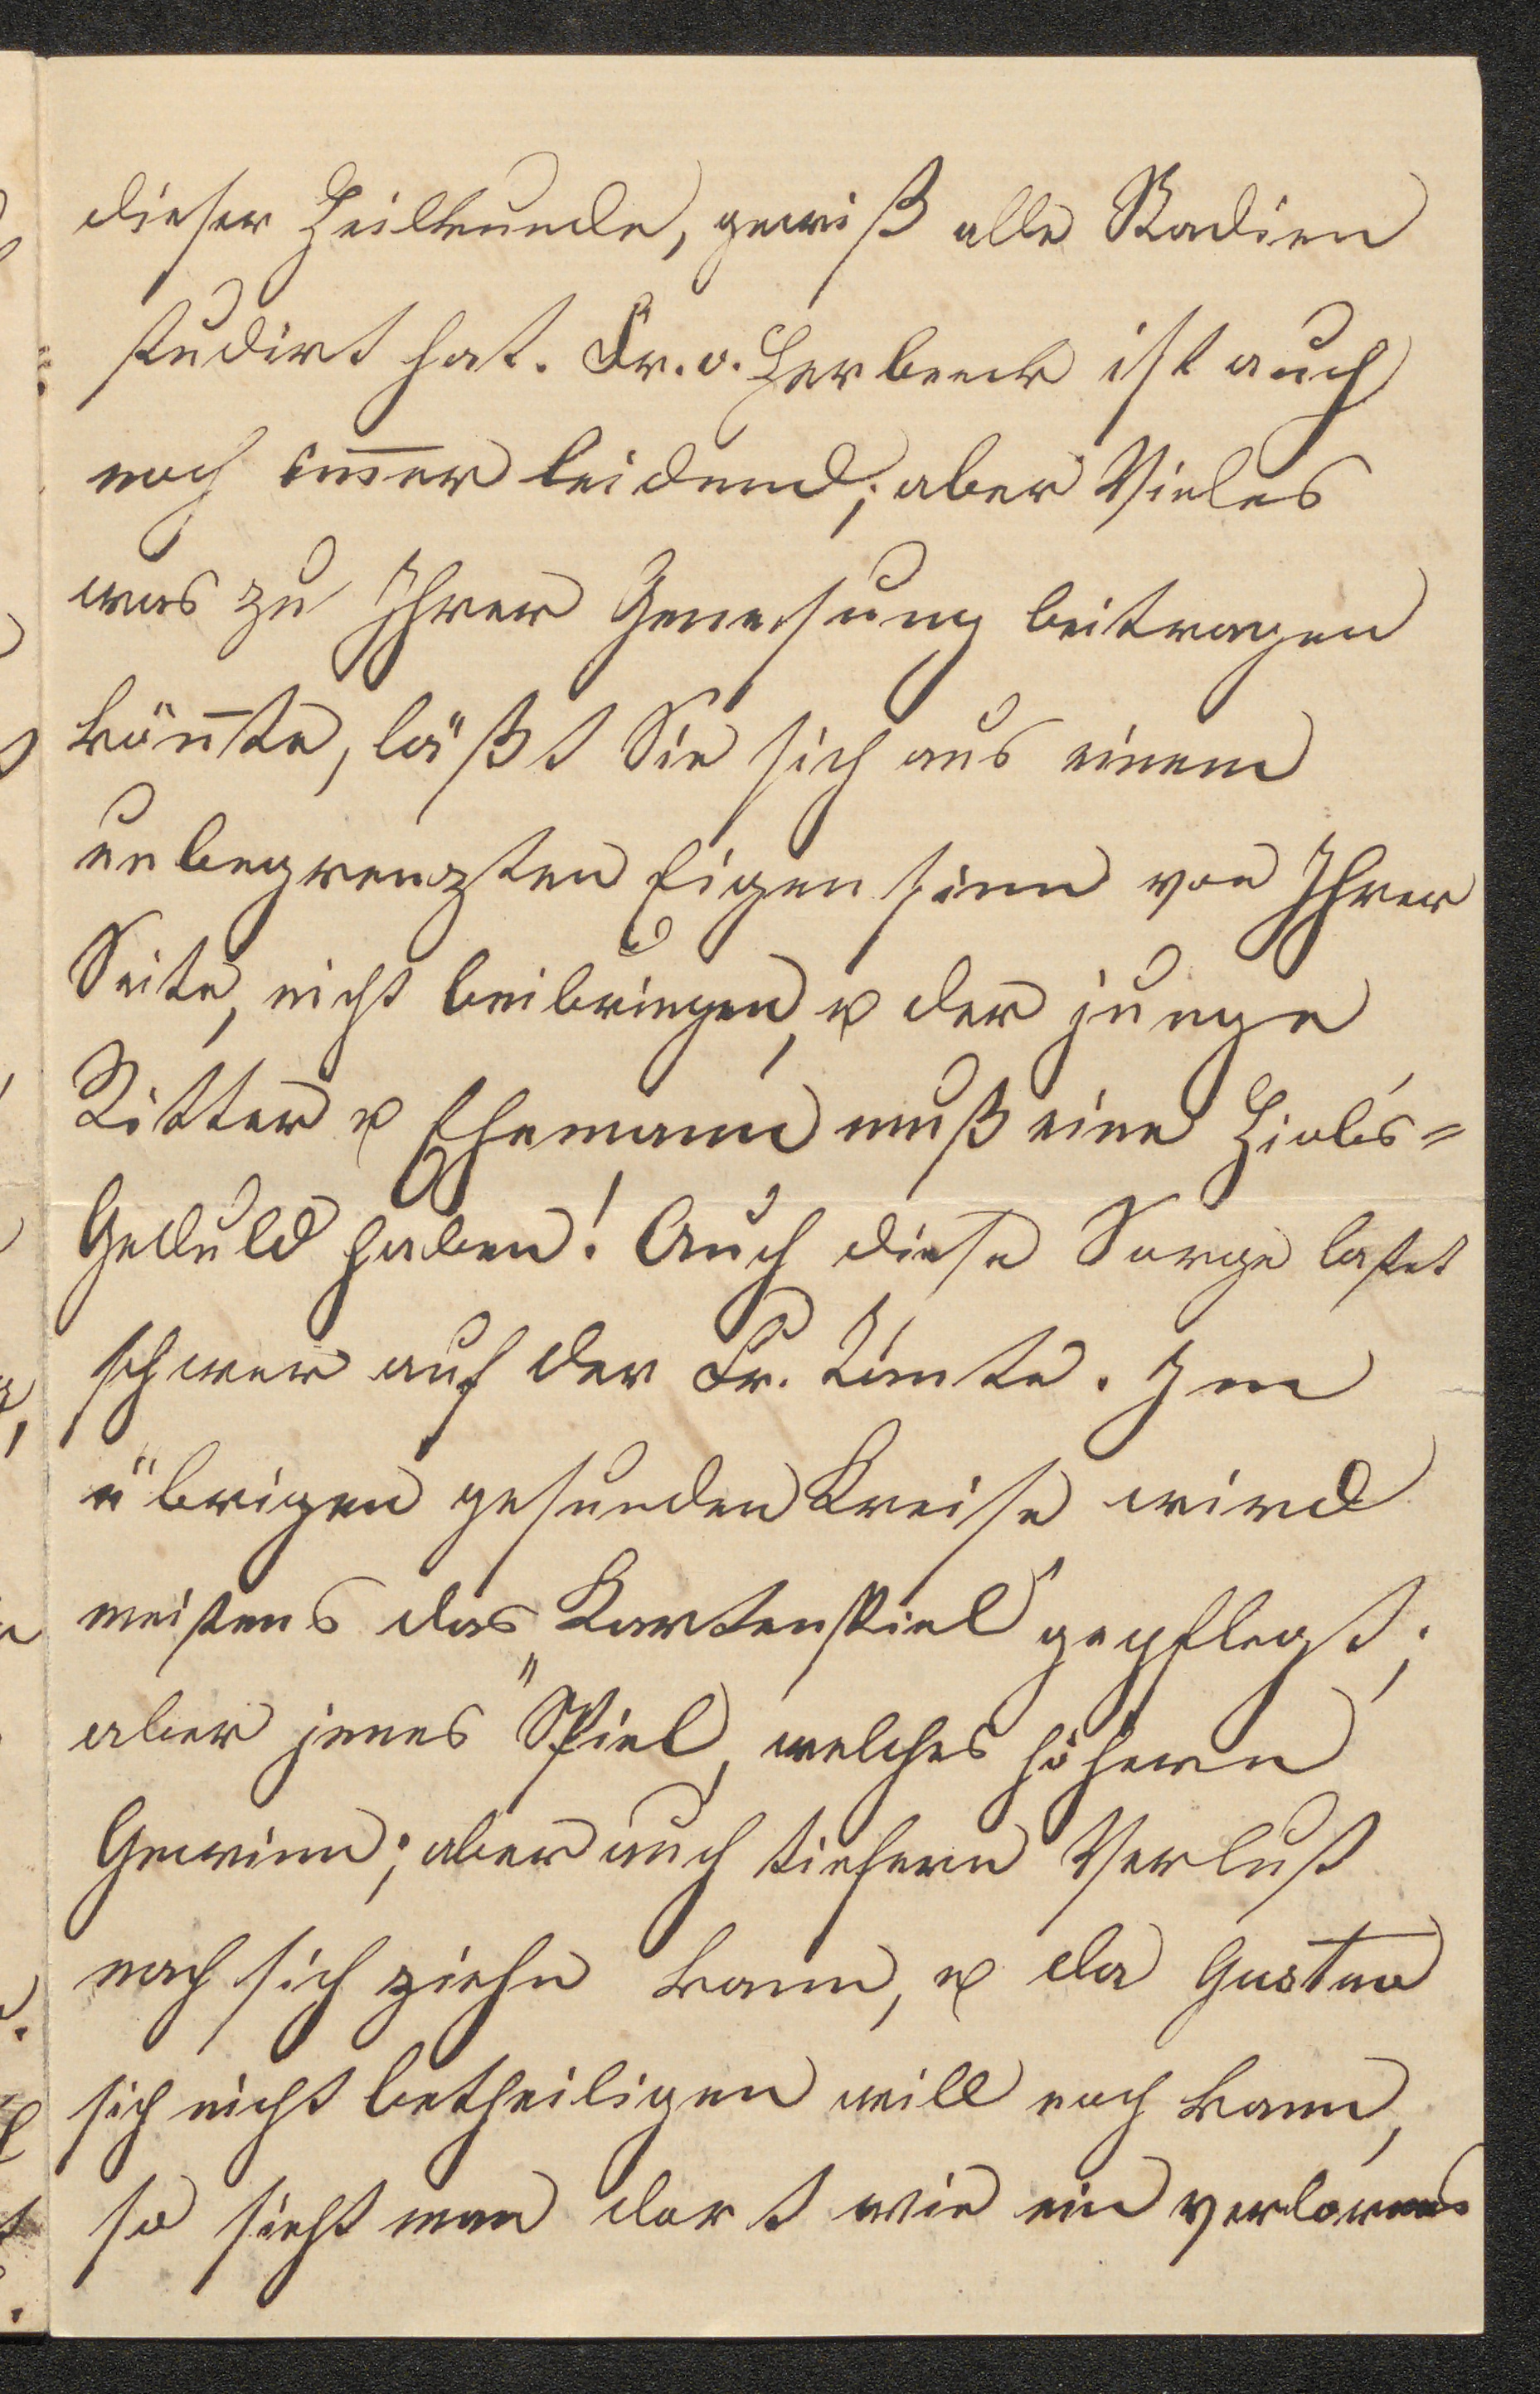 dieser Heilkunde, gewiß alle Stadien
studirt hat. Fr. v. Lerbeck ist auch
noch im̅er leidend; aber Vieles
was zu Ihrer Genesung beitragen
kön̅te, läßt Sie sich aus einem
unbegrenzten Eigensinn von Ihrer
Seite, nicht beibringen, u der junge
Ritter u Ehemann muß eine Hiobs=
Geduld haben! Auch diese Sorge lastet
schwer auf der Fr. Tante. Im
übrigen gesunden Kreise wird
meistens das „Kartenspiel“ gepflegt;
aber jenes „Spiel, welches höhern
Gewinn; aber auch tiefern Verlust
nach sich ziehn kann, u da Gustav
sich nicht betheiligen will noch kann,
so sieht man dort wie ein verlornes